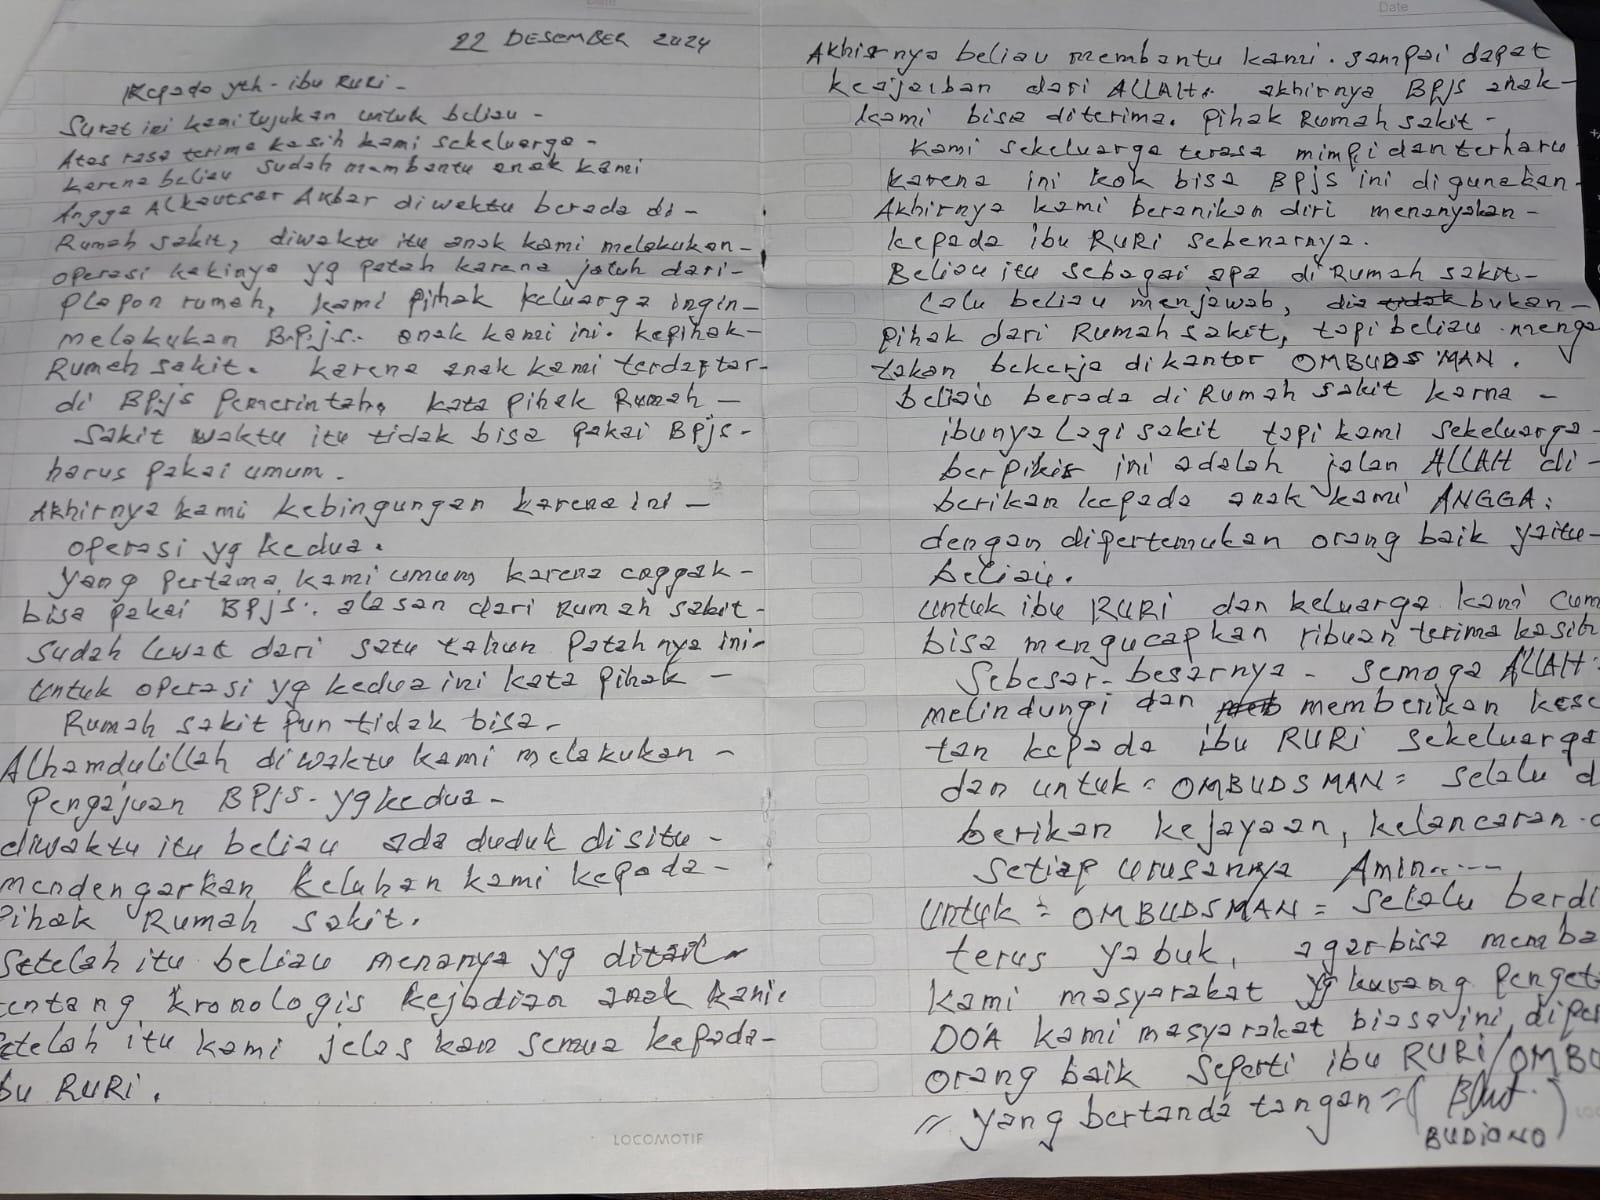 Date
22 DESEMBER 2024
Kepada yth - ibu RURi -
Surat ini kami tujukan untuk beliau -
Atas rasa terima kasih kami sekeluarga -
karena beliau sudah membantu anak kami
Angga Alkautsar Akbar diwaktu berada di -
Rumah sakit, diwaktu itu anak kami melakukan -
operasi kakinya yg patah karena jatuh dari -
plapon rumah, kami pihak keluarga ingin -
melakukan BPjs.. anak kami ini. kepihak -
Rumah sakit. karena anak kami terdaftar -
di BPjs Pemerintah, kata pihak Rumah -
Sakit waktu itu tidak bisa pakai BPjs -
harus pakai umum.
Akhirnya kami kebingungan karena ini -
operasi yg kedua.
yang pertama kami umum karena caggak -
bisa pakai BPjs.. alasan dari Rumah sakit -
sudah lewat dari satu tahun patah nya ini -
untuk operasi yg kedua ini kata pihak -
Rumah sakit pun tidak bisa -
Alhamdulillah diwaktu kami melakukan -
pengajuan BPJS - yg kedua -
diwaktu itu beliau ada duduk disitu -
mendengarkan keluhan kami kepada -
Pihak Rumah sakit.
Setelah itu beliau menanya yg ditail -
tentang kronologis kejadian anak kami.
Setelah itu kami jelas kan semua kepada -
ibu RURi.
LOCOMOTIF
Date
Akhirnya beliau membantu kami. sampai dapat
keajaiban dari ALLAH. akhirnya BPJS anak -
kami bisa diterima. pihak Rumah sakit -
Kami sekeluarga terasa mimpi dan terharu
karena ini kok bisa BPjs ini digunakan -
Akhirnya kami beranikan diri menanyakan -
kepada ibu RURi sebenarnya.
Beliau itu sebagai apa di Rumah sakit -
Lalu beliau menjawab, dia tidak bukan -
pihak dari Rumah sakit, tapi beliau menga
takan bekerja dikantor OMBUDSMAN.
beliau berada di Rumah sakit karna -
ibunya lagi sakit tapi kami sekeluarga -
berpikir ini adalah jalan ALLAH di -
berikan kepada anak kami ANGGA:
dengan dipertemukan orang baik yaitu -
beliau.
untuk ibu RURi dan keluarga kami cum
bisa mengucapkan ribuan terima kasih
Sebesar-besarnya - semoga ALLAH
melindungi dan memberikan kese
tan kepada ibu RURi sekeluarga
dan untuk = OMBUDSMAN = selalu d
berikan kejayaan, kelancaran.
Setiap urusannya Amin.....
Untuk = OMBUDSMAN = selalu berdi
terus yabuk, agar bisa memba
kami masyarakat yg kurang penget
DOA kami masyarakat biasa ini, dipe
orang baik seperti ibu RURi/OMBU
" yang bertanda tangan = (
BUDiONO )